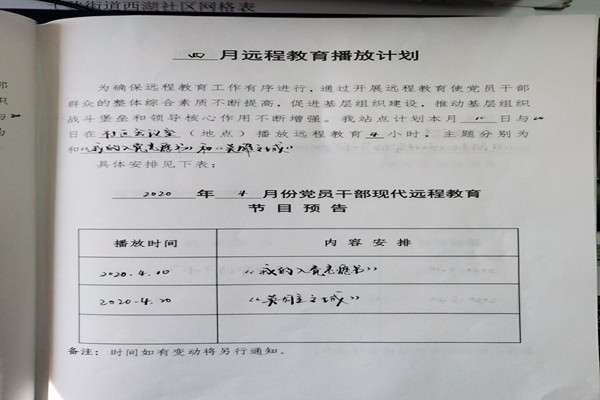 街道西湖社区网格表
四 月远程教育播放计划
为确保远程教育工作有序进行,通过开展远程教育使党员干部
群众的整体综合素质不断提高,促进基层组织建设,推动基层组织
战斗堡垒和领导核心作用不断增强。我站点计划本月 10 日与 20
日在 社区会议室 (地点)播放远程教育 4 小时,主题分别为
和《我的入党志愿书》和《英雄之城》
具体安排见下表:
2020 年 4 月份党员干部现代远程教育
节目预告
播放时间 内容安排
2020.4.10 《我的入党志愿书》
2020.4.20 《英雄之城》
备注:时间如有变动将另行通知。